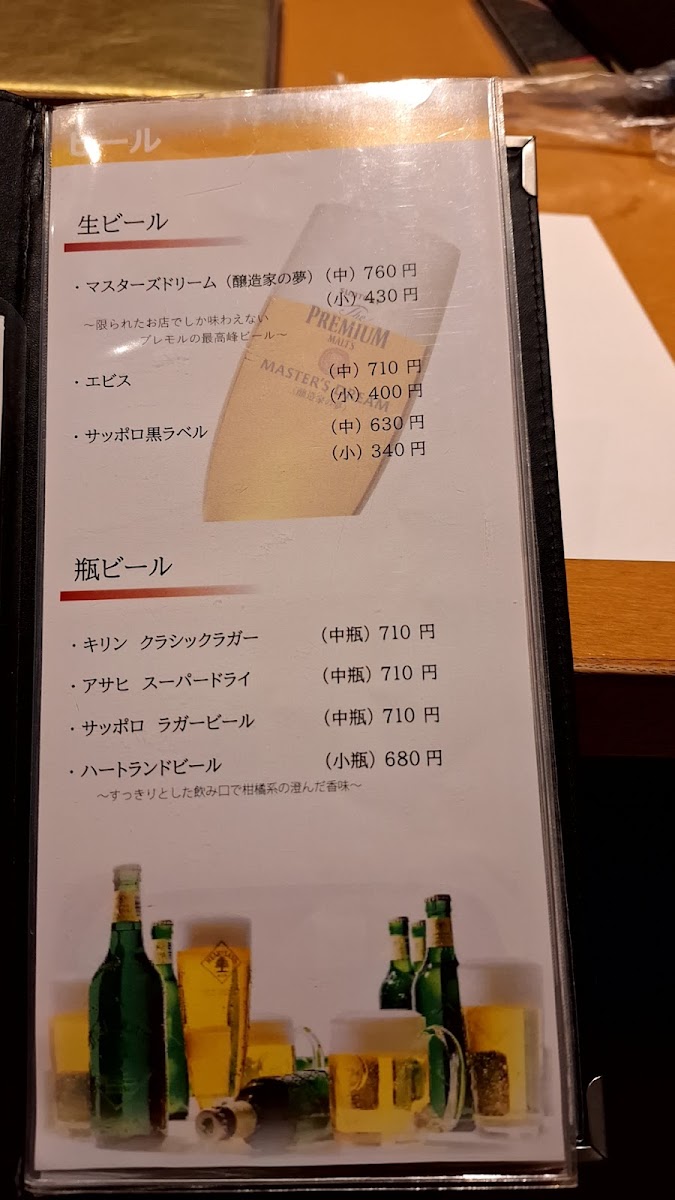 ビール
生ビール
・マスターズドリーム（醸造家の夢）（中）760円
（小）430円
～限られたお店でしか味わえない
プレモルの最高峰ビール～
・エビス （中）710円
（小）400円
・サッポロ黒ラベル （中）630円
（小）340円
The
PREMIUM
MALT'S
MASTER'S DREAM
（醸造家の夢）
瓶ビール
・キリン クラシックラガー （中瓶）710円
・アサヒ スーパードライ （中瓶）710円
・サッポロ ラガービール （中瓶）710円
・ハートランドビール （小瓶）680円
～すっきりとした飲み口で柑橘系の澄んだ香味～